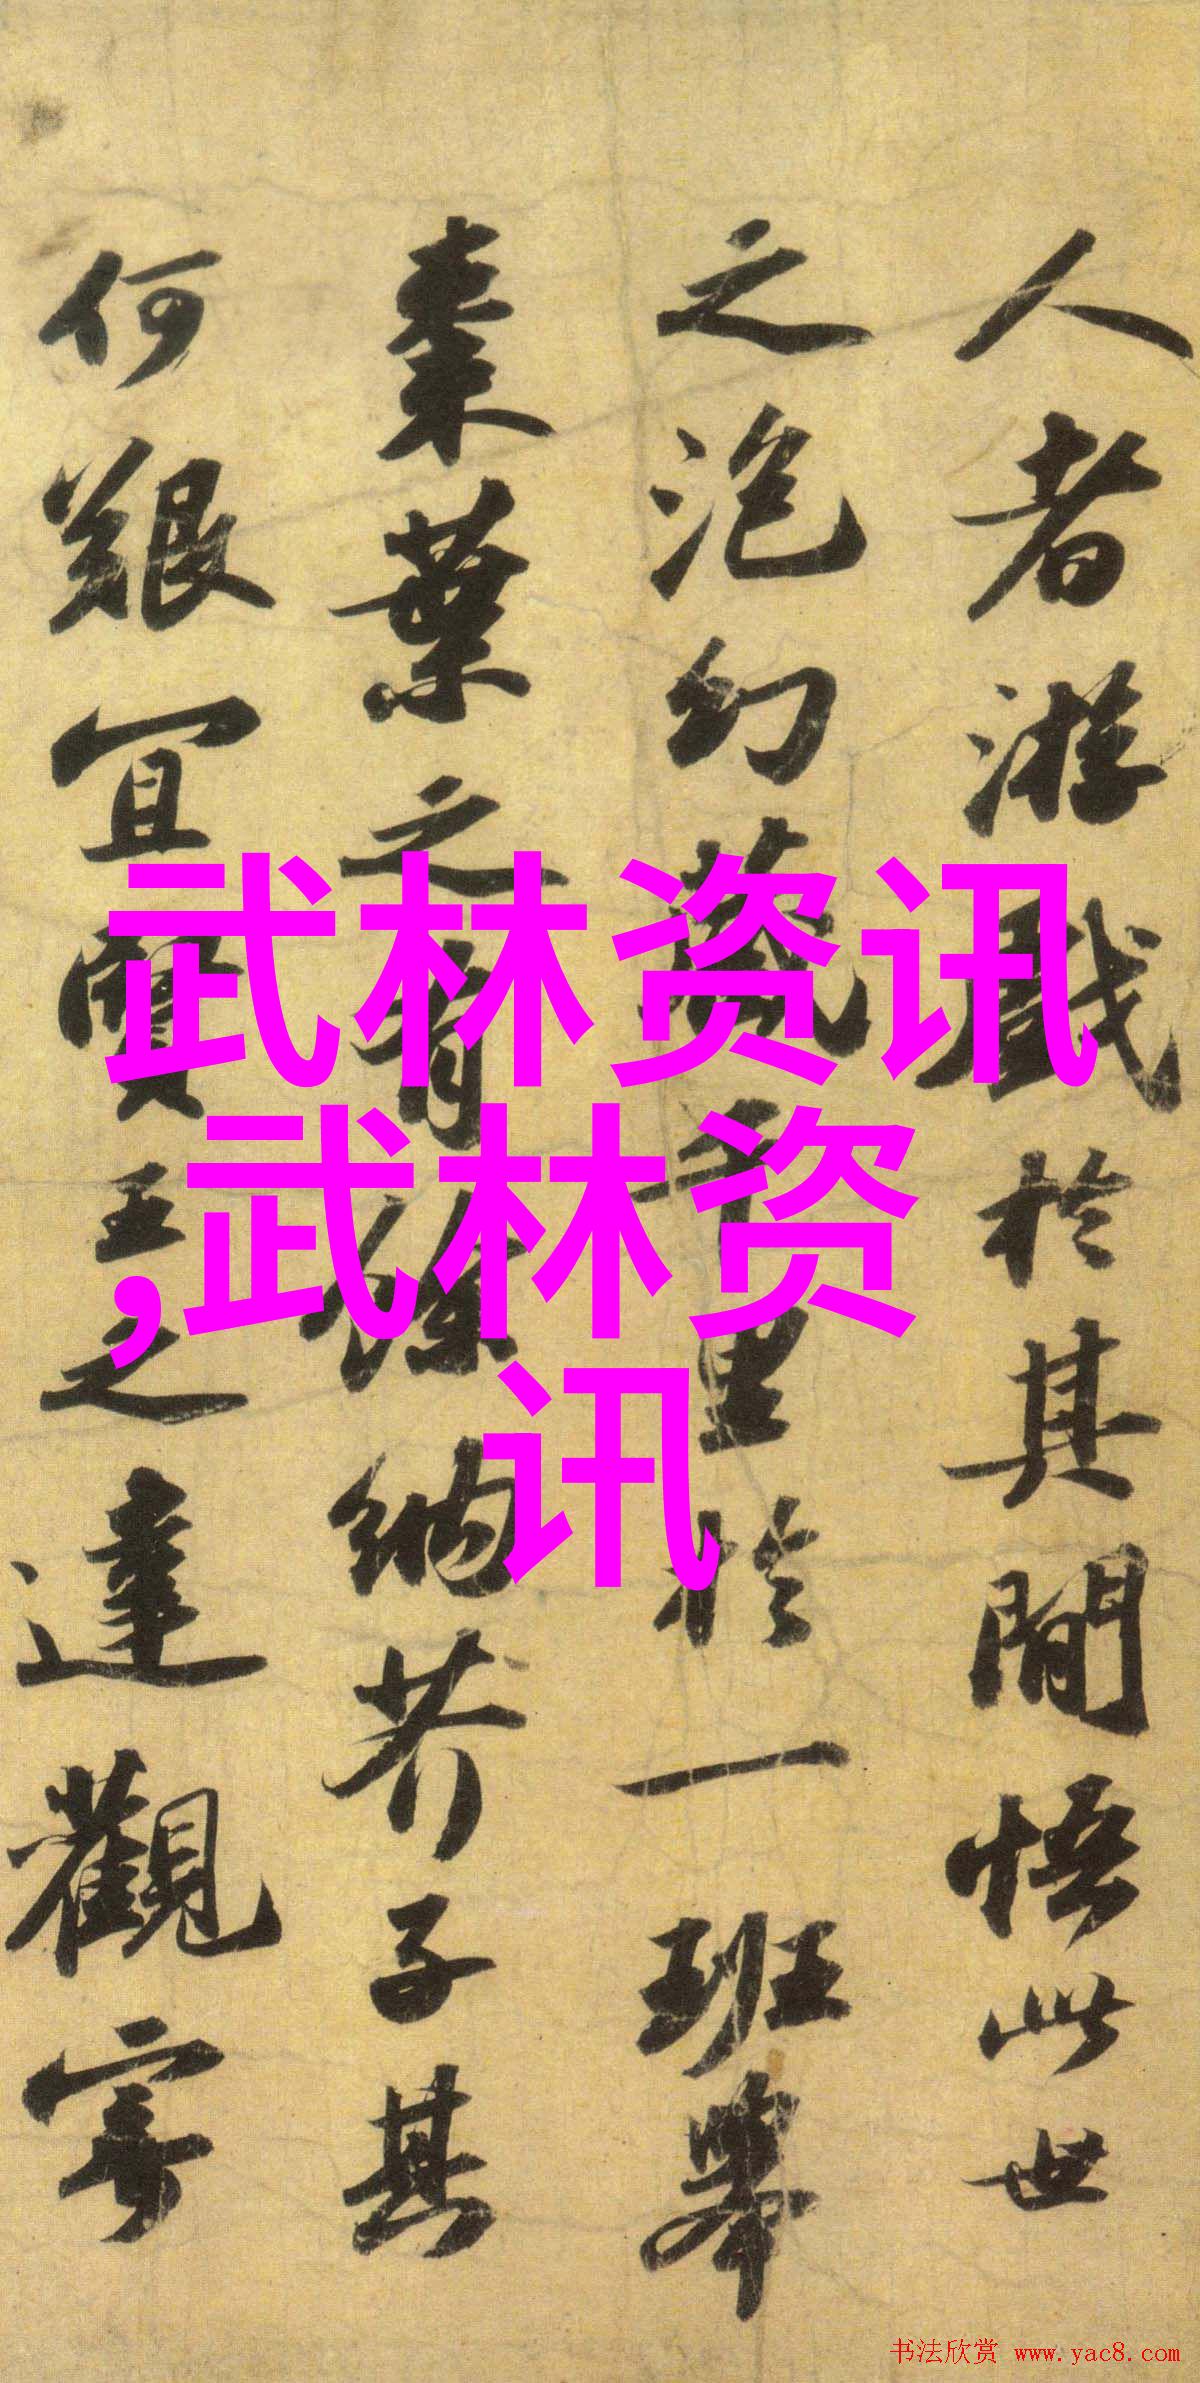 人者游戲於其間悟此世
之泡幻藏千里於一班舉
棗葉之有餘納芥子其
何艱宜賢王之達觀寄
武林资讯
,武林资
讯
书法欣赏 www.yac8.com